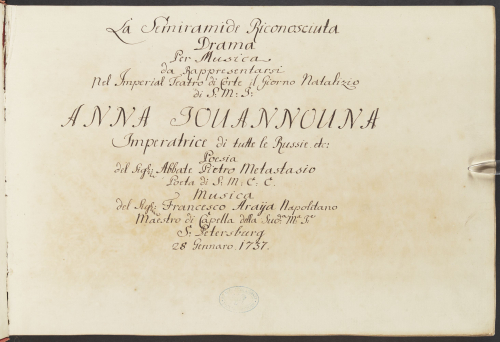 La Semiramide Riconosciuta
Drama
Per Musica
da Rappresentarsi
Nel Imperial Teatro di Corte il Giorno Natalizio
di S: M: I:
ANNA IOUANNOUNA
Imperatrice di tutte le Russie. etc:
Poesia
del Sigr: Abbate Pietro Metastasio
Poeta di S: M: C: C.
Musica
del Sigr: Francesco Araija Napolitano
Maestro di Capella della Sud.a M.a I.e
S: Petersburg
28 Gennaro. 1737.